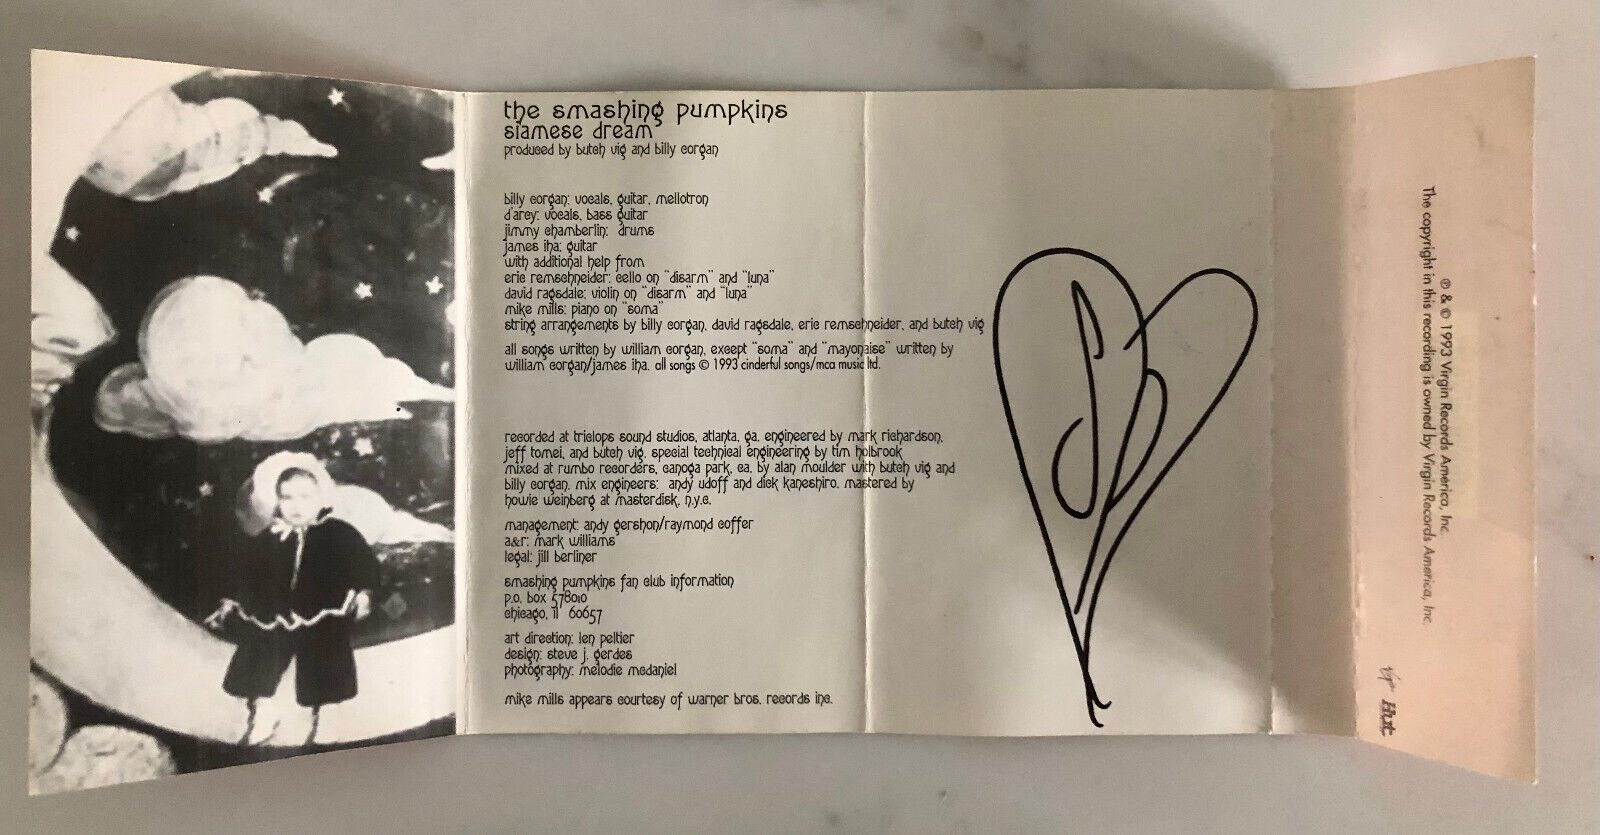 the smashing pumpkins
siamese dream
produced by butch vig and billy corgan
billy corgan: vocals, guitar, mellotron
d'arcy: vocals, bass guitar
jimmy chamberlin: drums
james iha: guitar
with additional help from
eric remschneider: cello on "disarm" and "luna"
david ragsdale: violin on "disarm" and "luna"
mike mills: piano on "soma"
string arrangements by billy corgan, david ragsdale, eric remschneider, and butch vig
all songs written by william corgan, except "soma" and "mayonaise" written by
william corgan/james iha. all songs © 1993 cinderful songs/mca music ltd.
recorded at triclops sound studios, atlanta, ga. engineered by mark richardson,
jeff tomei, and butch vig, special technical engineering by tim holbrook
mixed at rumbo recorders, canoga park, ca. by alan moulder with butch vig and
billy corgan. mix engineers: andy udoff and dick kaneshiro. mastered by
howie weinberg at masterdisk, n.y.c.
management: andy gershon/raymond coffer
a&r: mark williams
legal: jill berliner
smashing pumpkins fan club information
p.o. box 578010
chicago, il 60657
art direction: len peltier
design: steve j. gerdes
photography: melodie mcdaniel
mike mills appears courtesy of warner bros. records inc.
℗ & © 1993 Virgin Records America, Inc.
The copyright in this recording is owned by Virgin Records America, Inc.
Virgin Hut